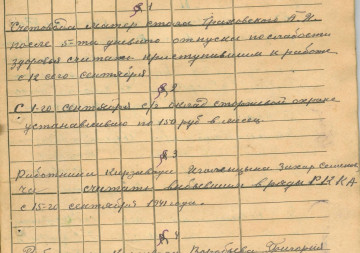 § 1
Счетовода мастер стола Граховского П. И.
после 5-ти дневного отпуска по слабости
здоровья считать приступившим к работе
с 12 сего сентября
§ 2
С 1-го сентября с/г оклад сторожевой охране
устанавливаю по 150 руб в месяц
§ 3
Работника Кирзавода Захар Семено
ча считать выбывшим в ряды РККА
с 15-го сентября 1941 года.
§ 4
Воробьева Григория